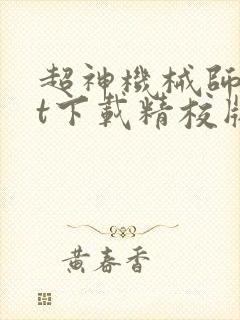 超神機械師
t下載精校版
黃春香